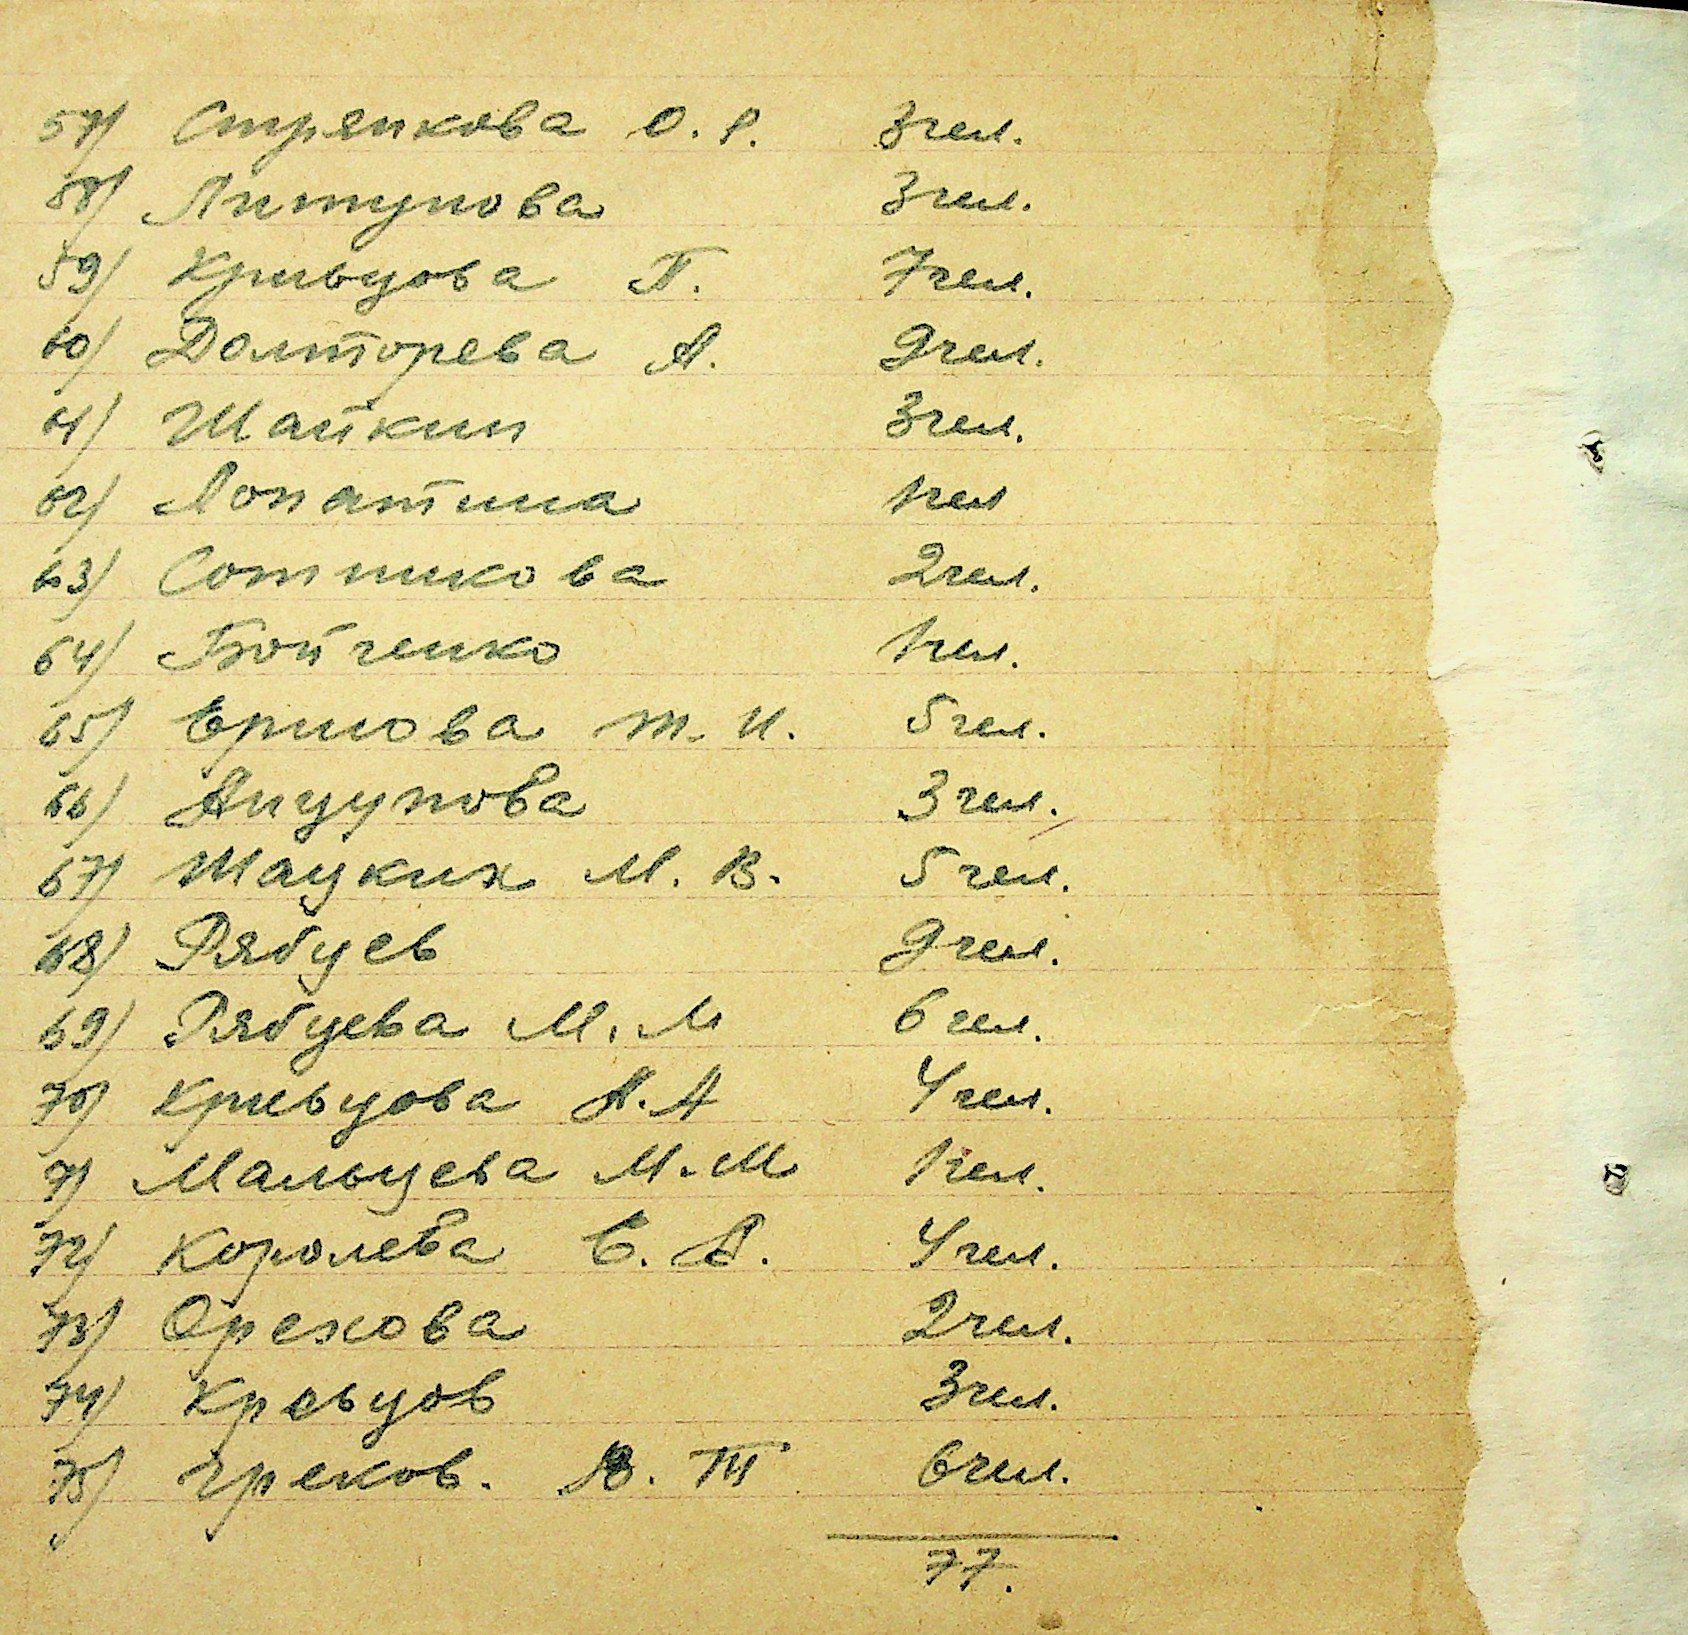 57) Стряпкова О. Р. 3 чел.
58) Литунова 3 чел.
59) Кривцова П. 7 чел.
60) Долторева А. 9 чел.
61) Шайкин 3 чел.
62) Лопатина 1 чел
63) Сотникова 2 чел.
64) Бойченко 1 чел.
65) Ершова Т. И. 5 чел.
66) 3 чел.
67) Шацких М. В. 5 чел.
68) Рябцев 9 чел.
69) Рябцева М. М 6 чел.
70) Кривцова А. А 4 чел.
71) Мальцева М. М 1 чел.
72) Королева Е. А. 4 чел.
73) Орехова 2 чел.
74) Кревцов 3 чел.
75) Греков. В. Т 6 чел.
77.